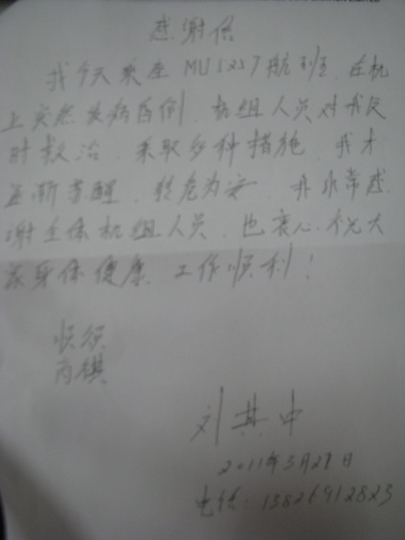 感谢信
我今天乘座MU5237航班，在机
上突然发病昏倒，机组人员对我及
时救治，采取多种措施，我才
逐渐苏醒，转危为安，非常感
谢全体机组人员，也衷心祝大
家身体健康，工作顺利！
刘其中
2011年5月29日
电话：13826912823